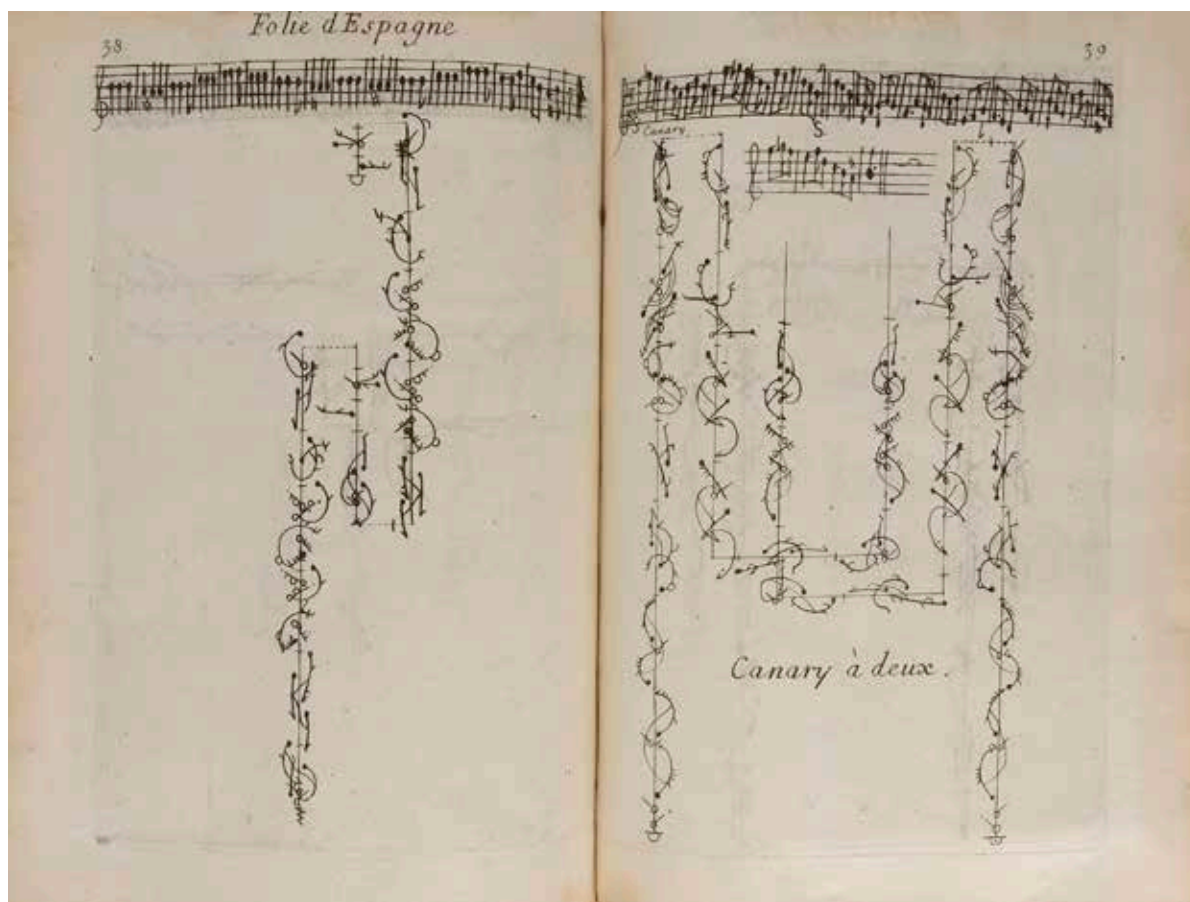 Folie d'Espagne
38
39
Canary
Canary à deux.